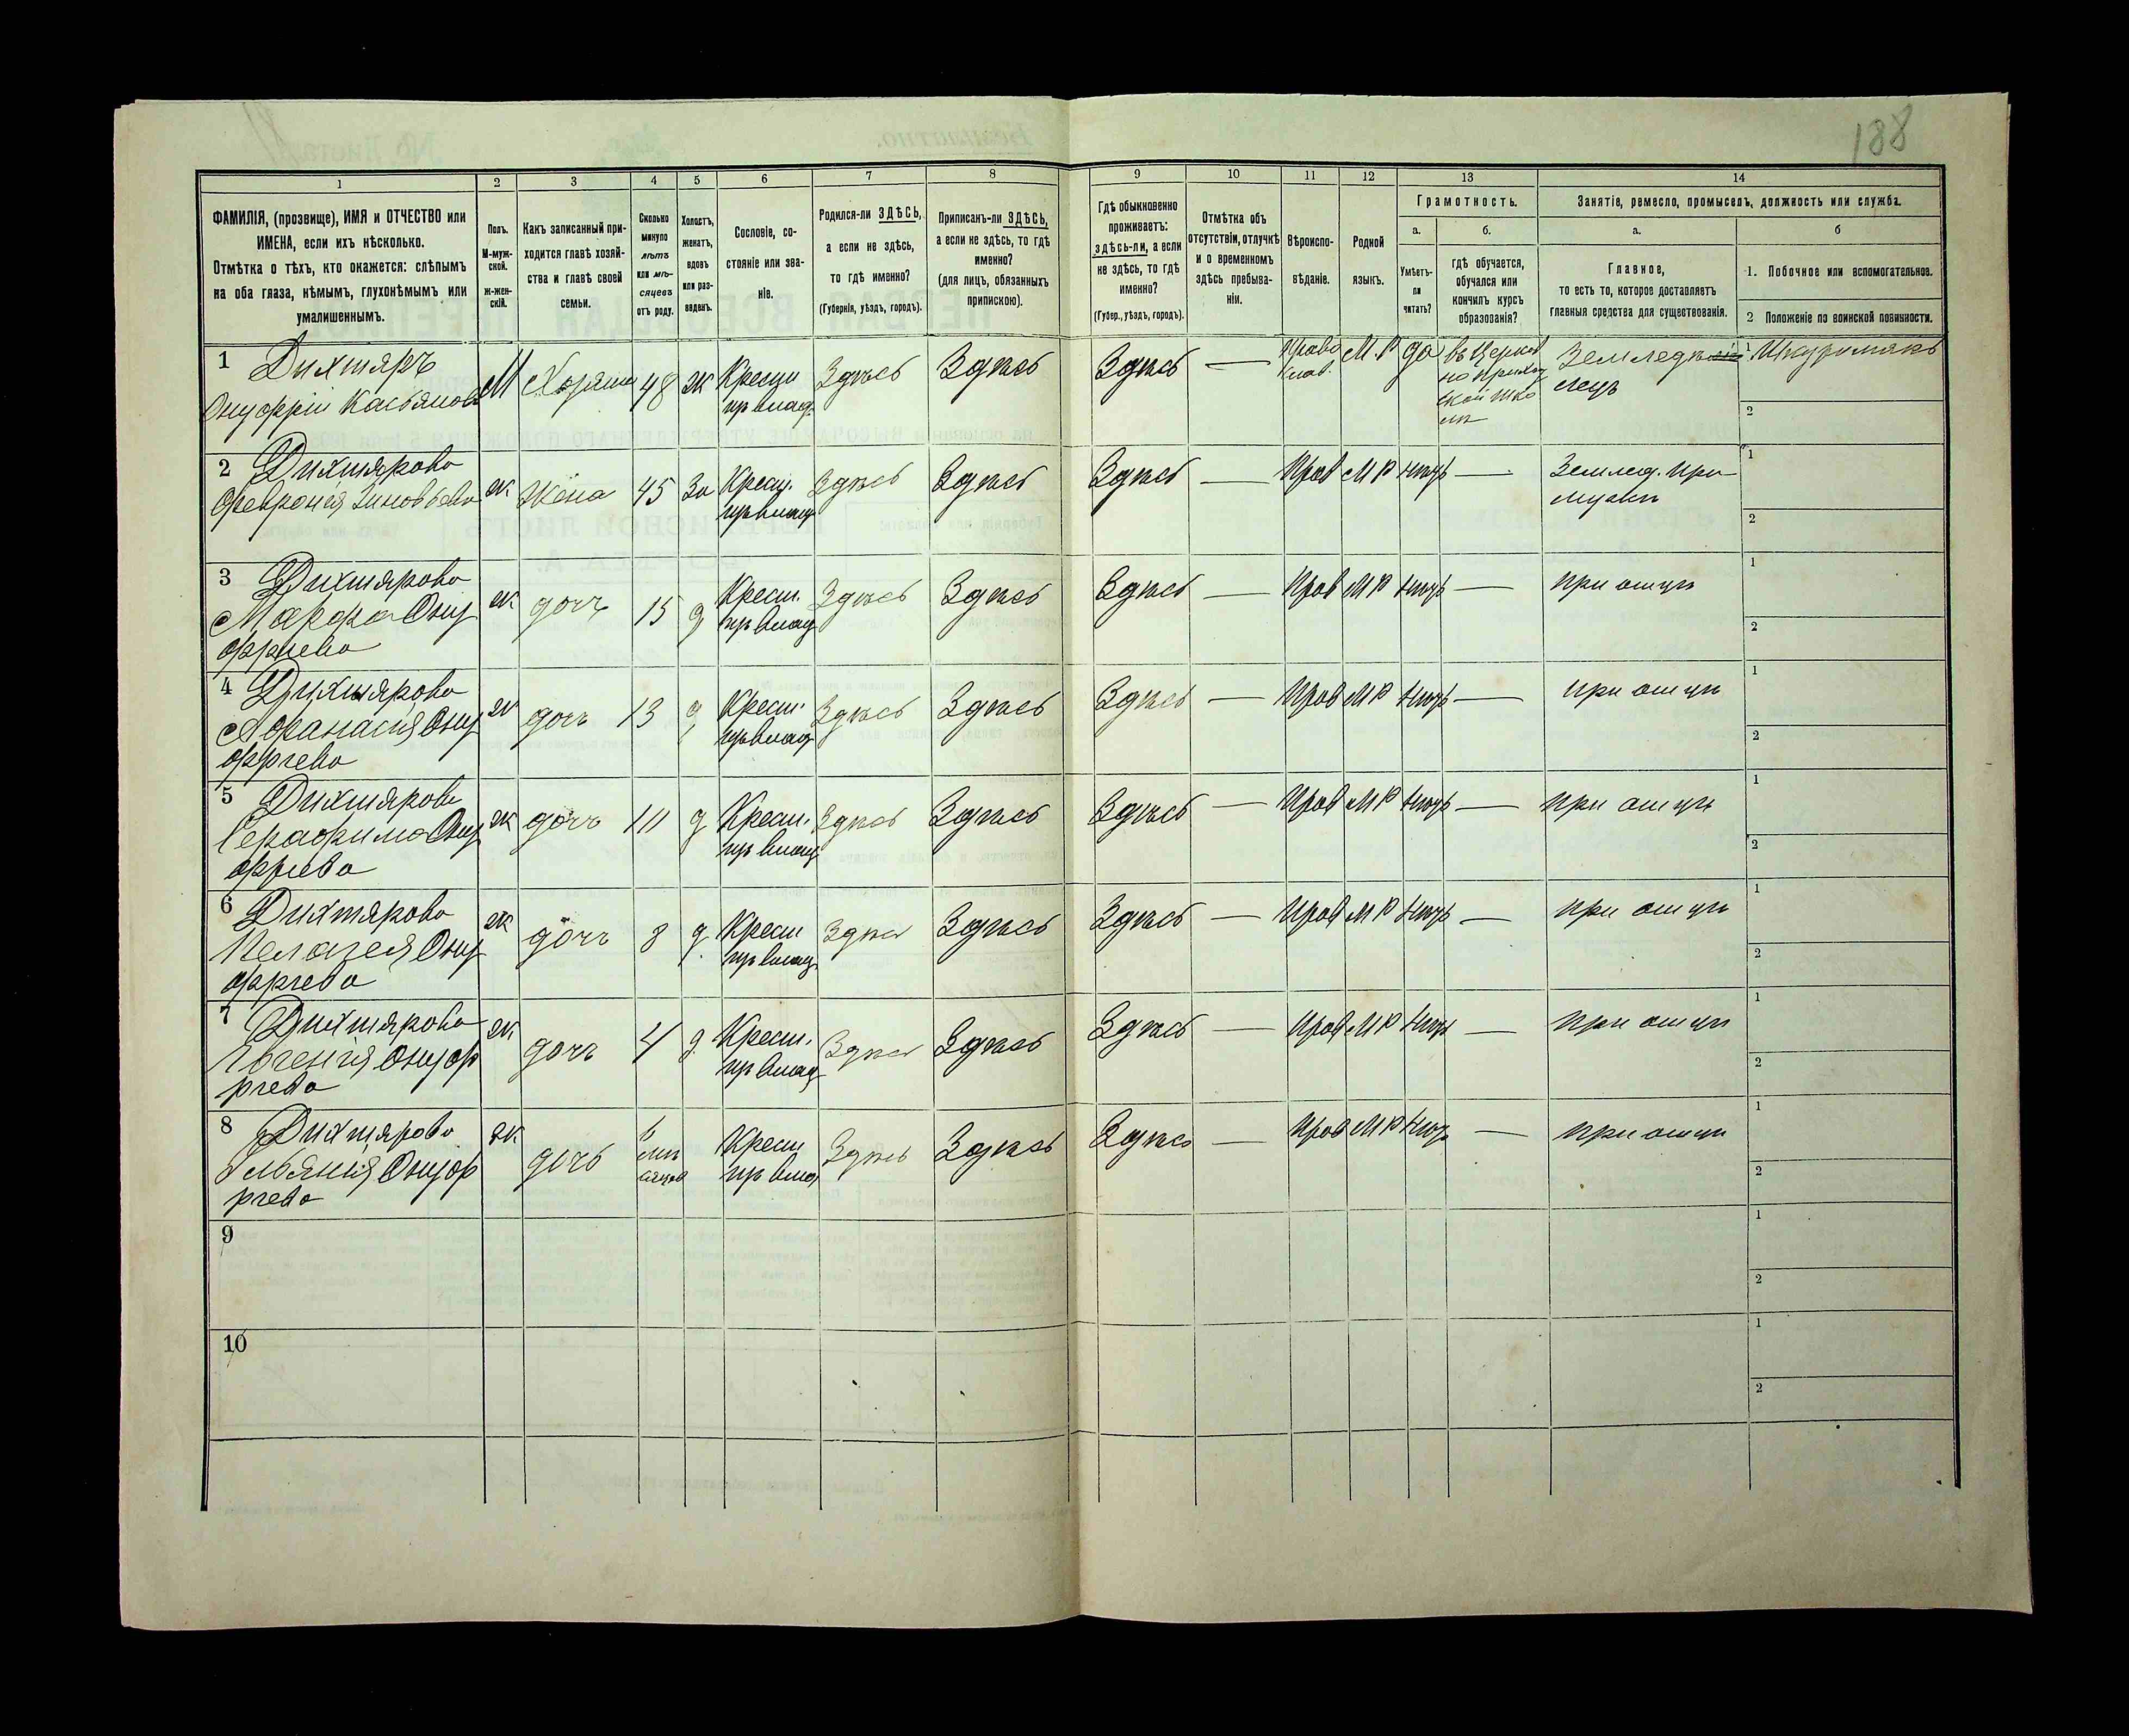 188
1
2
3
4
5
6
7
8
9
10
11
12
13
14
ФАМИЛІЯ, (прозвище), ИМЯ и ОТЧЕСТВО или
ИМЕНА, если ихъ нѣсколько.
Отмѣтка о тѣхъ, кто окажется: слѣпымъ
на оба глаза, нѣмымъ, глухонѣмымъ или
умалишеннымъ.
Полъ.
М-муж-
ской.
ж-жен-
скій.
Какъ записанный при-
ходится главѣ хозяй-
ства и главѣ своей
семьи.
Сколько
минуло
лѣтъ
или мѣ-
сяцевъ
отъ роду.
Холостъ,
женатъ,
вдовъ
или раз-
веденъ.
Сословіе, со-
стояніе или зва-
ніе.
Родился-ли ЗДѢСЬ,
а если не здѣсь,
то гдѣ именно?
(Губернія, уѣздъ, городъ).
Приписанъ-ли ЗДѢСЬ,
а если не здѣсь, то гдѣ
именно?
(для лицъ, обязанныхъ
припискою).
Гдѣ обыкновенно
проживаетъ:
здѣсь-ли, а если
не здѣсь, то гдѣ
именно?
(Губер., уѣздъ, городъ).
Отмѣтка объ
отсутствіи, отлучкѣ
и о временномъ
здѣсь пребыва-
ніи.
Вѣроиспо-
вѣданіе.
Родной
языкъ.
Грамотность.
а.
Умѣетъ-
ли
читать?
б.
гдѣ обучается,
обучался или
кончилъ курсъ
образованія?
Занятіе, ремесло, промыселъ, должность или служба.
а.
Главное,
то есть то, которое доставляетъ
главныя средства для существованія.
б
1. Побочное или вспомогательное.
2 Положеніе по воинской повинности.
1 Дихтяръ
Онуфрій Касьяновъ
М Хозяинъ 48 ж
Крестья
пр владѣ.
Здѣсь Здѣсь Здѣсь —
Право
слав.
М.Р да
въ Церков
но приход
ской шко
лѣ
Земледѣ
лецъ
2
2 Дихтярова
Феврония Зиновьева
ж Жена 45 За
Крест.
пр влад
Здѣсь Здѣсь Здѣсь — Прав М Р нѣтъ —
Землед. при
мужѣ
1
2
3 Дихтярова
Марфа Ону
фріева
ж дочь 15 д
Крест.
пр влад
Здѣсь Здѣсь Здѣсь — Прав М Р нѣтъ — при отцѣ
1
2
4 Дихтярова
Афанасія Ону
фріева
ж дочь 13 д
Крест.
пр влад
Здѣсь Здѣсь Здѣсь — Прав М Р нѣтъ — при отцѣ
1
2
5 Дихтярова
Серафима Ону
фріева
ж дочь д
Крест.
пр влад
Здѣсь Здѣсь Здѣсь — Прав М Р нѣтъ — при отцѣ
1
2
6 Дихтярова
Пелагея Ону
фріева
ж дочь 8 д.
Крест
пр влад.
Здѣсь Здѣсь Здѣсь — Прав М Р нѣтъ — при отцѣ
1
2
7 Дихтярова
Евгенія Онуф
ріева
ж дочь 4 д.
Крест.
пр влад
Здѣсь Здѣсь Здѣсь — Прав М Р нѣтъ — при отцѣ
1
2
8 Дихтярова
Ульянія Онуф
ріева
ж дочь
мѣ
сяцев
Крест
пр вла
Здѣсь Здѣсь Здѣсь — Прав М Р нѣтъ — при отцѣ
1
2
9
1
2
10
1
2